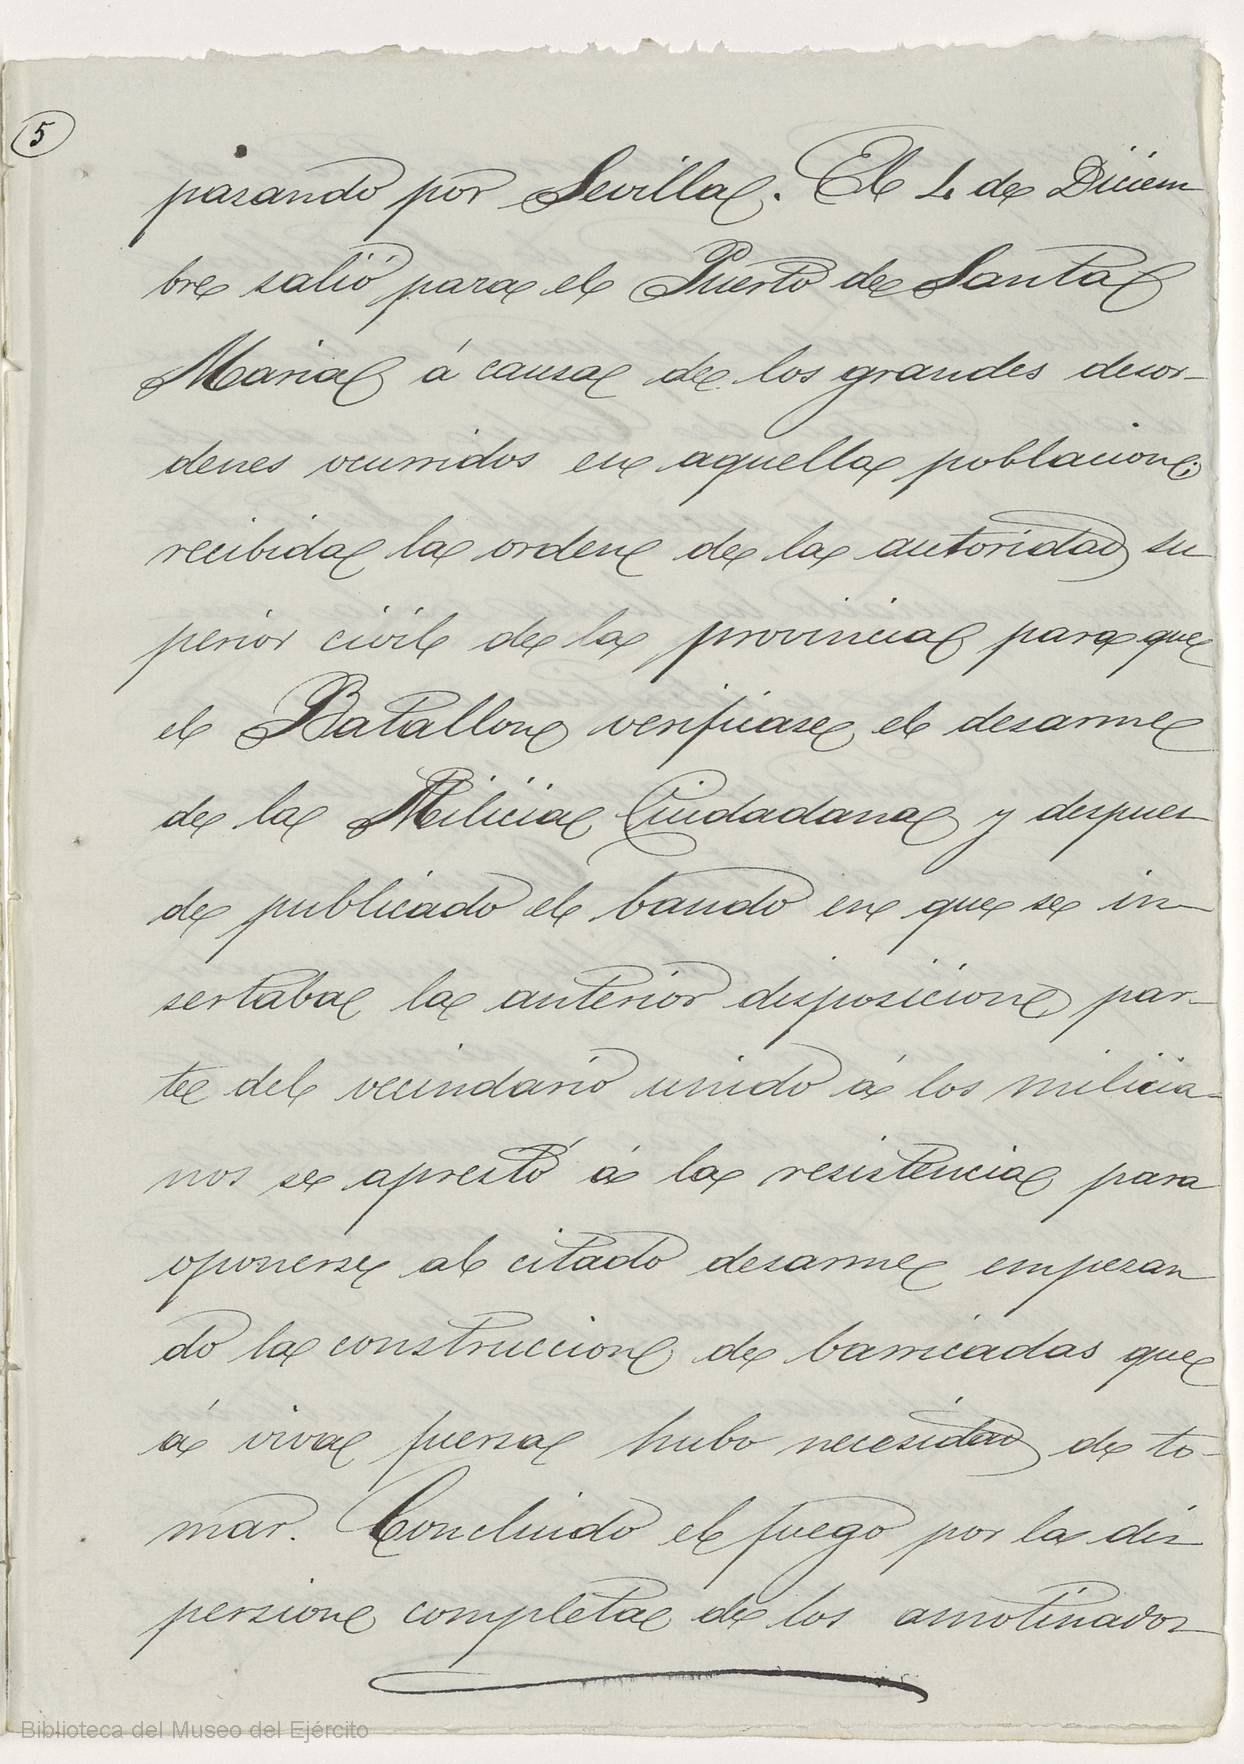 5
pasando por Sevilla. El 4 de Diciem
bre salió para el Puerto de Santa
Maria á causa de los grandes desor-
denes ocurridos en aquella poblacion;
recibida la orden de la autoridad su
perior civil de la provincia para que
el Batallon verificase el desarme
de la Milicia Ciudadana y despues
de publicado el bando en que se in-
sertaba la anterior disposicion par-
te del vecindario unido á los milicia-
nos se aprestó á la resistencia para
oponerse al citado desarme empezan
do la construccion de barricadas que
á viva fuerza hubo necesidad de to-
mar. Concluido el fuego por la dis
persion completa de los amotinados
Biblioteca del Museo del Ejército